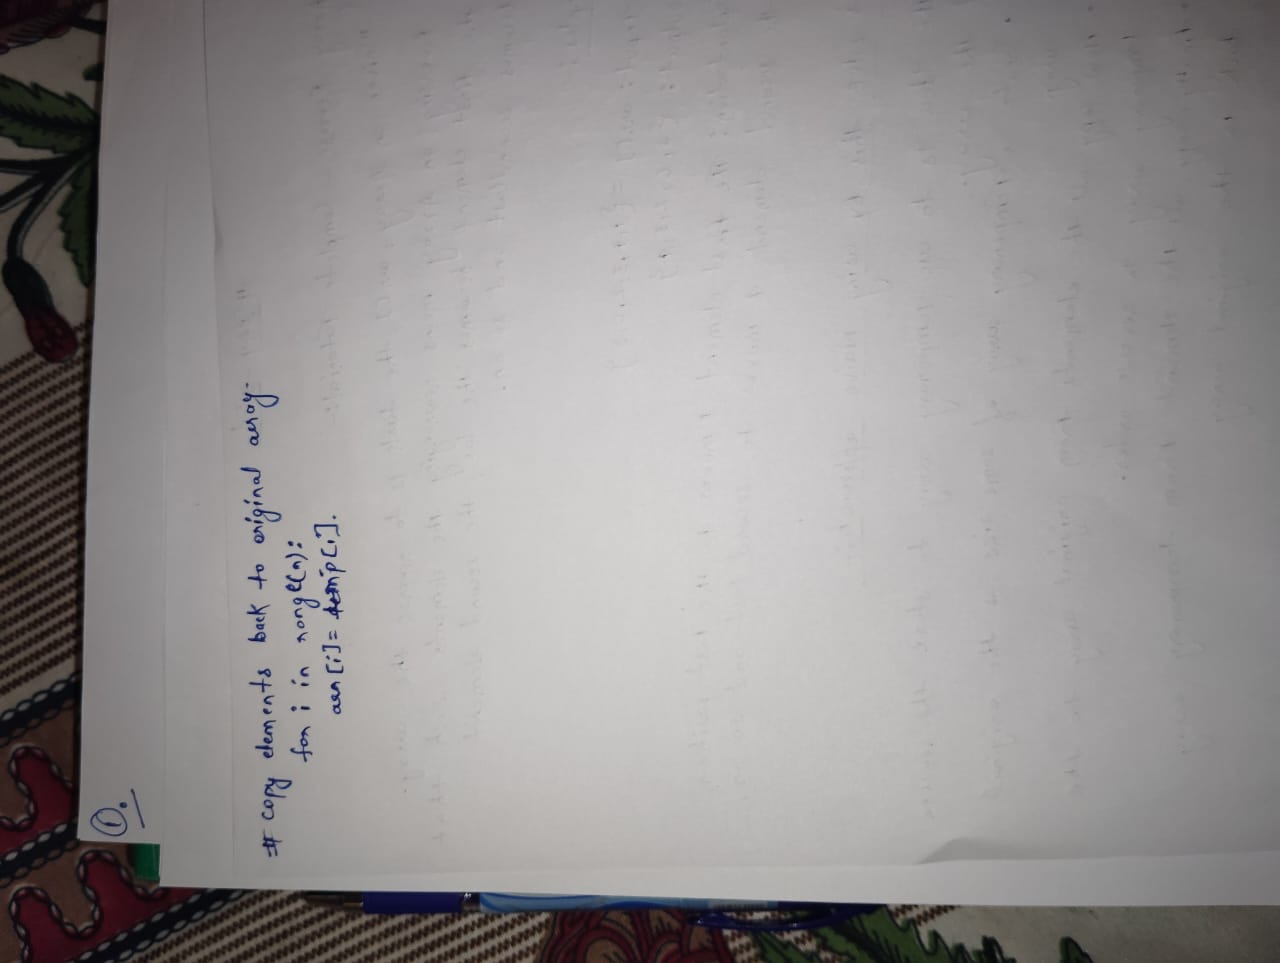 ①.
# copy elements back to original array.
for i in range(n):
arr[i] = temp[i].